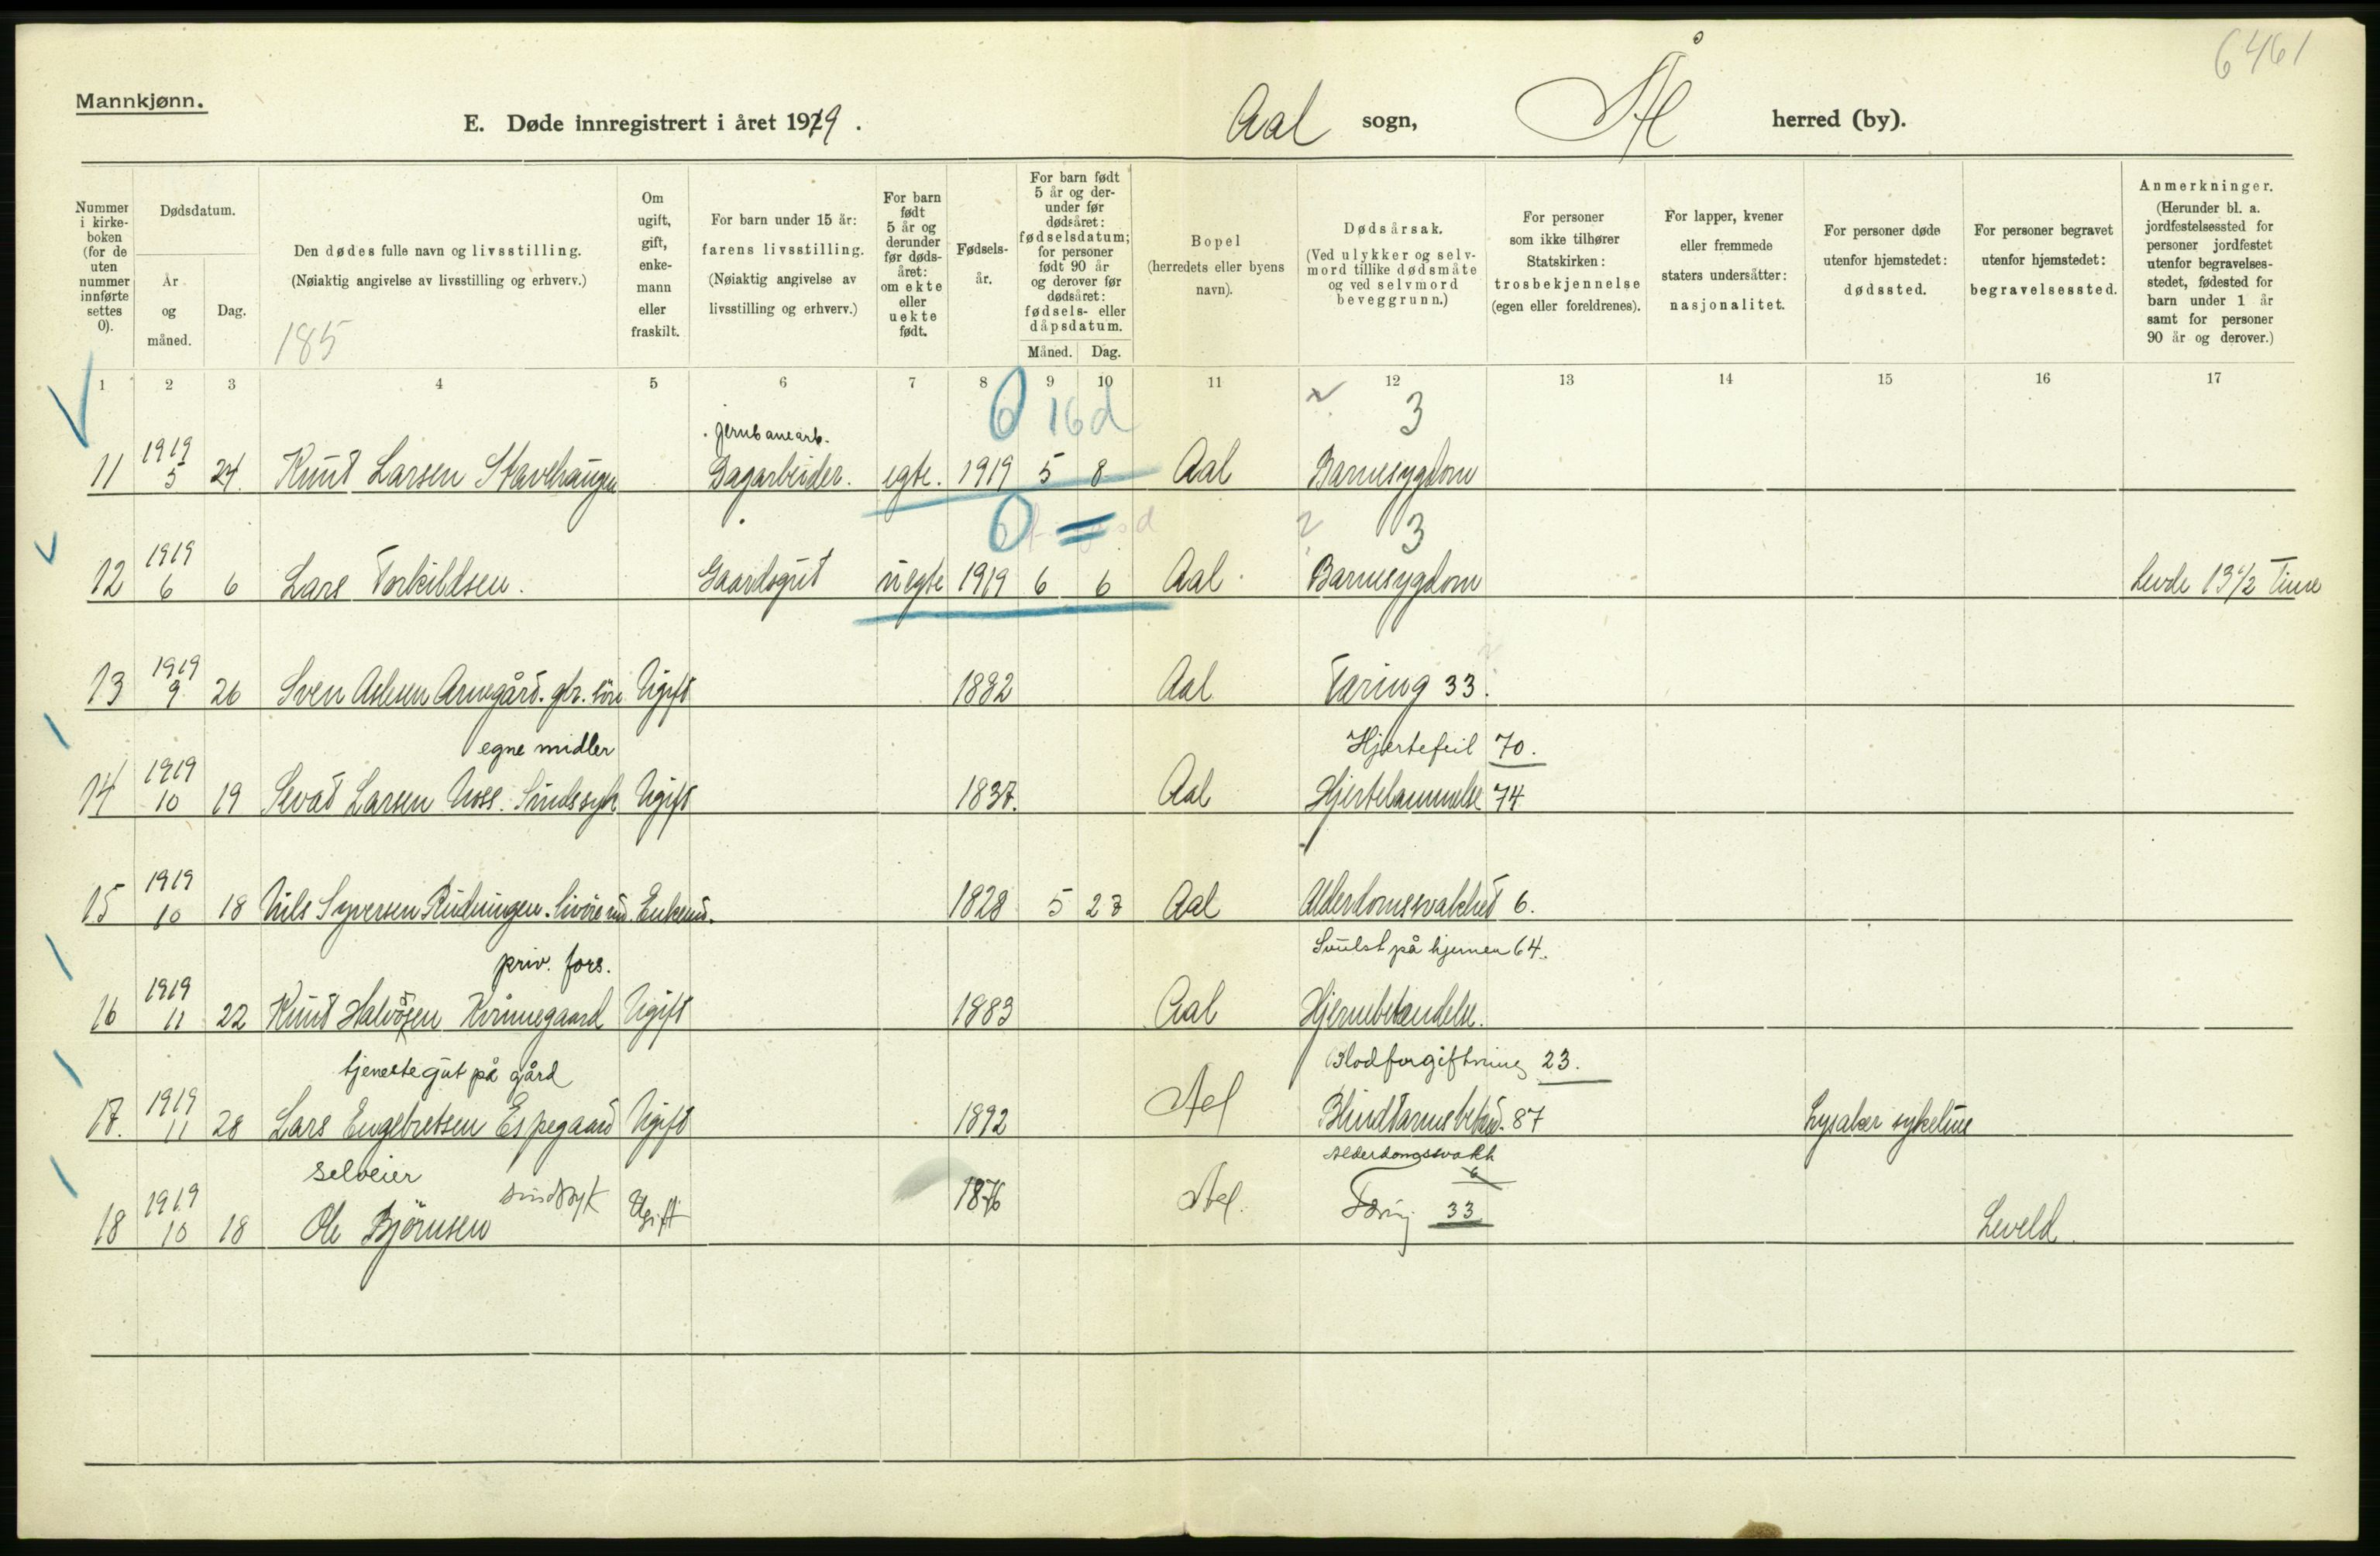 6461
Mannkjønn.
E. Døde innregistrert i året 1919.
Aal sogn, Ål herred (by).
Nummer i kirkeboken (for de uten nummer innførte settes 0).
Dødsdatum.
År og måned.
Dag.
Den dødes fulle navn og livsstilling.
(Nøiaktig angivelse av livsstilling og erhverv.)
185
Om ugift, gift, enkemann eller fraskilt.
For barn under 15 år: farens livsstilling.
(Nøiaktig angivelse av livsstilling og erhverv.)
For barn født 5 år og derunder før dødsåret: om ekte eller uekte født.
Fødselsår.
For barn født 5 år og derunder før dødsåret: fødselsdatum; for personer født 90 år og derover før dødsåret: fødsels- eller dåpsdatum.
Måned. Dag.
Bopel (herredets eller byens navn).
Dødsårsak.
(Ved ulykker og selvmord tillike dødsmåte og ved selvmord beveggrunn.)
For personer som ikke tilhører Statskirken: trosbekjennelse (egen eller foreldrenes).
For lapper, kvener eller fremmede staters undersåtter: nasjonalitet.
For personer døde utenfor hjemstedet: dødssted.
For personer begravet utenfor hjemstedet: begravelsessted.
Anmerkninger.
(Herunder bl. a. jordfestelsessted for personer jordfestet utenfor begravelsesstedet, fødested for barn under 1 år samt for personer 90 år og derover.)
1 2 3 4 5 6 7 8 9 10 11 12 13 14 15 16 17
6 16d 3
jernbanearb.
11 1919 5 24. Knut Larsen Stavehaugen Dagarbeider. egte. 1919 5 8 Aal Barnesygdom
3
12 1919 6 6 Lars Torkildsen. Gaardsgut uegte 1919 6 6 Aal. Barnesygdom Levde 13 1/2 Time
13 1919 9 26 Sven Aslesen Arnegård. gbr. søn Ugift 1882 Aal Tæring 33.
egne midler Hjertefeil 70.
14 1919 10 19 Sevat Larsen Noss. Sindssyk Ugift 1837. Aal Hjertelammelse 74
15 1919 10 18 Nils Syversen Rudningen. Enkem. 1828 5 23 Aal Alderdomssvakhed 6.
priv. fors. Svulst på hjernen 64.
16 1919 11 22 Knut Halvorsen Kvinnegaard Ugift 1883 Aal Hjernebetændelse.
tjenestegut på gård Blodforgiftning 23.
17. 1919 11 28 Lars Engebretsen Espegaard Ugift 1892 Ael Blindtarmsbetænd. 87 Lysaker sykehus
selveier sindssyk Alderdomssvakh 6
18 1919 10 18 Ole Bjørnsen Ugift 1876 Ael. Tæring 33 Leveld.